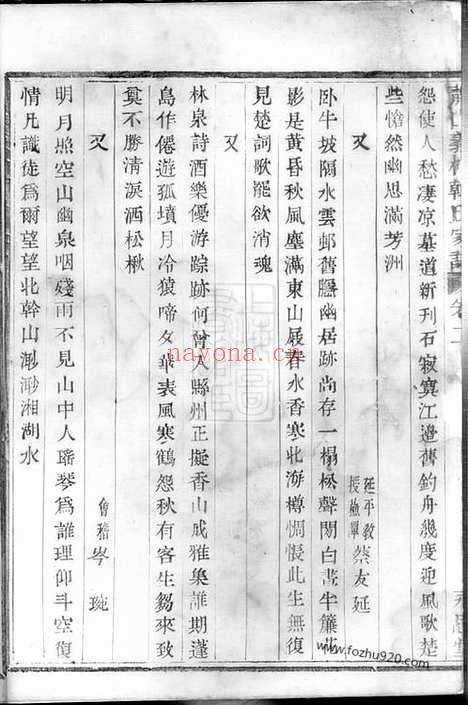 蕭山義橋韓氏家譜 卷二
怨使人愁淒凉墓道新刊石寂寞江邉舊釣舟幾度迎風歌楚
些愴然幽思滿芳洲
又
延平教授 蔡友延
卧牛坡隔水雲邨舊隱幽居跡尚存一榻松聲閒白晝半簾花
影是黄昏秋風塵滿東山屐春水香寒北海樽惆悵此生無復
見楚詞歌罷欲消魂
又
林泉詩酒樂優游踪跡何曾入縣州正擬香山成雅集誰期蓬
島作僊遊孤墳月冷猿啼夂華表風寒鶴怨秋有客生芻來致
奠不勝清淚洒松楸
又
會稽 岑琬
明月照空山幽泉咽殘雨不見山中人瑤琴爲誰理仰斗空復
情凡識徒爲爾望望北幹山渺渺湘湖水
nayona.cn
www.fozhu79.com